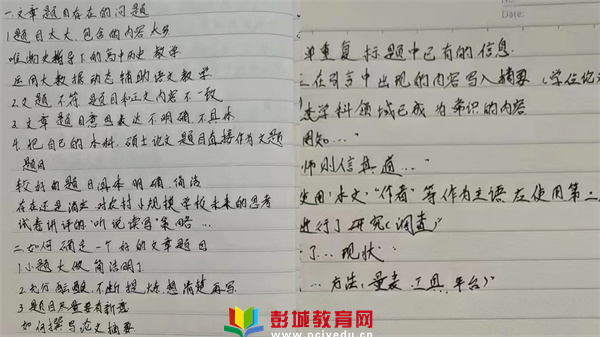 一.文章题目存在的问题
1.题目太大,包含的内容太多
唯物史观指导下的高中历史教学
运用大数据动态辅助语文教学
2.文题不符 题目和正文内容不一致
3.文章题目意思表达不明确,不具体
4.把自己的本科、硕士论文题目直接作为文题
题目
较好的题目具体、明确、简洁
存在还是消亡 对农村小规模学校未来的思考
试卷讲评的"听说读写"策略…
二.如何确定一个好的文章题目
1.小题大做 简洁明了
2.充分酝酿,不断提炼,想清楚再写
3.题目尽量要有新意
如何撰写论文摘要
Date:
单重复标题中已有的信息
在引言中出现的内容写入摘要(学位论
学科领域已成为常识的内容
周知…"
师则信其道…"
使用"本文""作者"等作为主语 应使用第三
进行了研究(调查)"
了…现状"
…方法(量表、工具、平台)"
彭城教育网
www.pcjyedu.cn